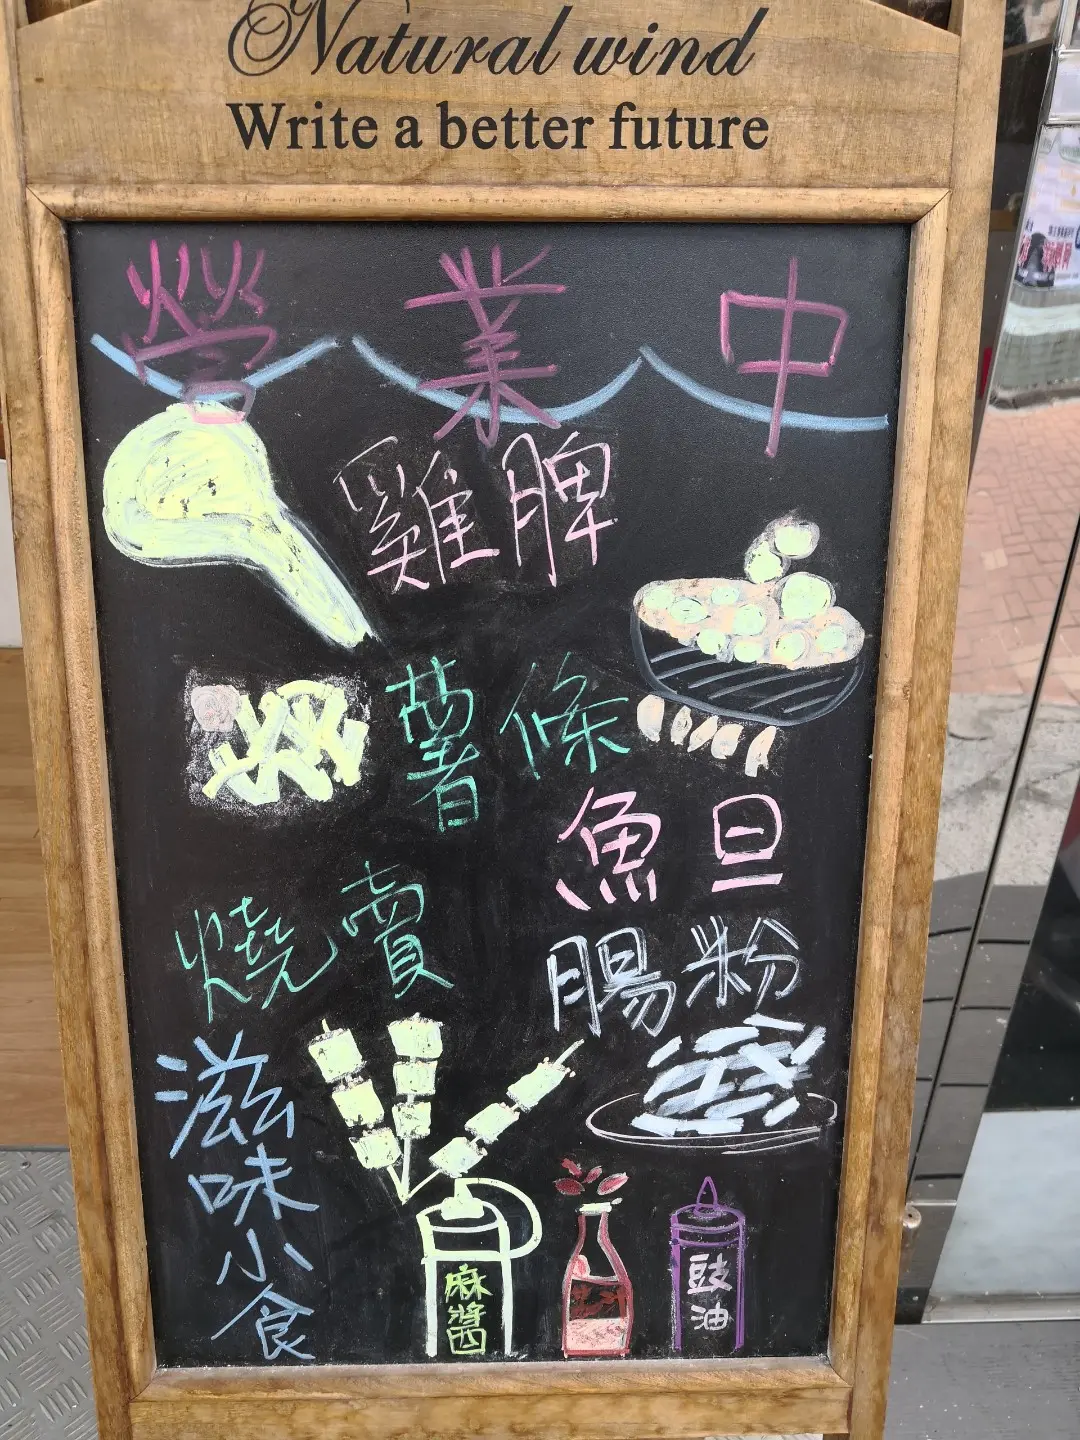 Natural wind
Write a better future
營業中
雞脾
薯條
魚旦
燒賣
腸粉
滋味小食
麻醬
豉油